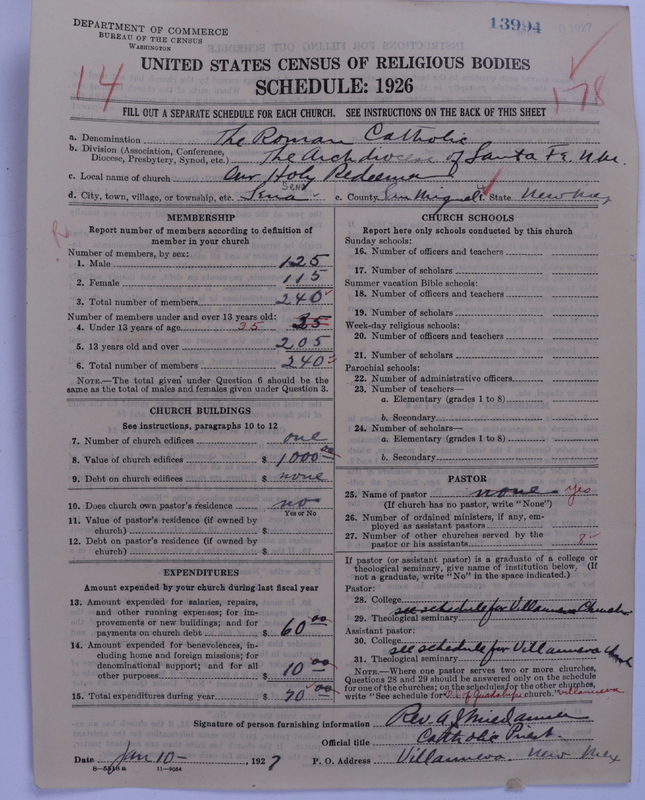 DEPARTMENT OF COMMERCE
BUREAU OF THE CENSUS
WASHINGTON
13994
1927
UNITED STATES CENSUS OF RELIGIOUS BODIES
SCHEDULE: 1926
14
178
FILL OUT A SEPARATE SCHEDULE FOR EACH CHURCH. SEE INSTRUCTIONS ON THE BACK OF THIS SHEET
a. Denomination The Roman Catholic
b. Division (Association, Conference, Diocese, Presbytery, Synod, etc.) The Archdiocese of Santa Fe N. Mex.
c. Local name of church Our Holy Redeemer
d. City, town, village, or township, etc. Sena Sena e. County San Miguel f. State New Mex
MEMBERSHIP
Report number of members according to definition of
member in your church
Number of members, by sex:
1. Male 125
2. Female 115
3. Total number of members 240
Number of members under and over 13 years old:
4. Under 13 years of age 35 35
5. 13 years old and over 205
6. Total number of members 240
NOTE.—The total given under Question 6 should be the
same as the total of males and females given under Question 3.
CHURCH BUILDINGS
See instructions, paragraphs 10 to 12
7. Number of church edifices one
8. Value of church edifices $ 1000 00
9. Debt on church edifices $ none
10. Does church own pastor's residence no
Yes or No
11. Value of pastor's residence (if owned by
church) $
12. Debt on pastor's residence (if owned by
church) $
EXPENDITURES
Amount expended by your church during last fiscal year
13. Amount expended for salaries, repairs,
and other running expenses; for im-
provements or new buildings; and for
payments on church debt $ 60 00
14. Amount expended for benevolences, in-
cluding home and foreign missions; for
denominational support; and for all
other purposes $ 10 00
15. Total expenditures during year $ 70 00
CHURCH SCHOOLS
Report here only schools conducted by this church
Sunday schools:
16. Number of officers and teachers
17. Number of scholars
Summer vacation Bible schools:
18. Number of officers and teachers
19. Number of scholars
Week-day religious schools:
20. Number of officers and teachers
21. Number of scholars
Parochial schools:
22. Number of administrative officers
23. Number of teachers—
a. Elementary (grades 1 to 8)
b. Secondary
24. Number of scholars—
a. Elementary (grades 1 to 8)
b. Secondary
PASTOR
25. Name of pastor none yes
(If church has no pastor, write "None")
26. Number of ordained ministers, if any, em-
ployed as assistant pastors
27. Number of other churches served by the
pastor or his assistants 8
If pastor (or assistant pastor) is a graduate of a college or
theological seminary, give name of institution below. (If
not a graduate, write "No" in the space indicated.)
Pastor:
28. College
see schedule for Villanueva Church
29. Theological seminary
Assistant pastor:
30. College
see schedule for Villanueva Church
31. Theological seminary
NOTE.—Where one pastor serves two or more churches,
Questions 28 and 29 should be answered only on the schedule
for one of the churches; on the schedules for the other churches,
write "See schedule for of Guadalupe church." Villanueva
Signature of person furnishing information Rev. A
Official title Catholic Priest
Date Jan 10 - , 1927 P. O. Address Villanueva New Mex
11—9084